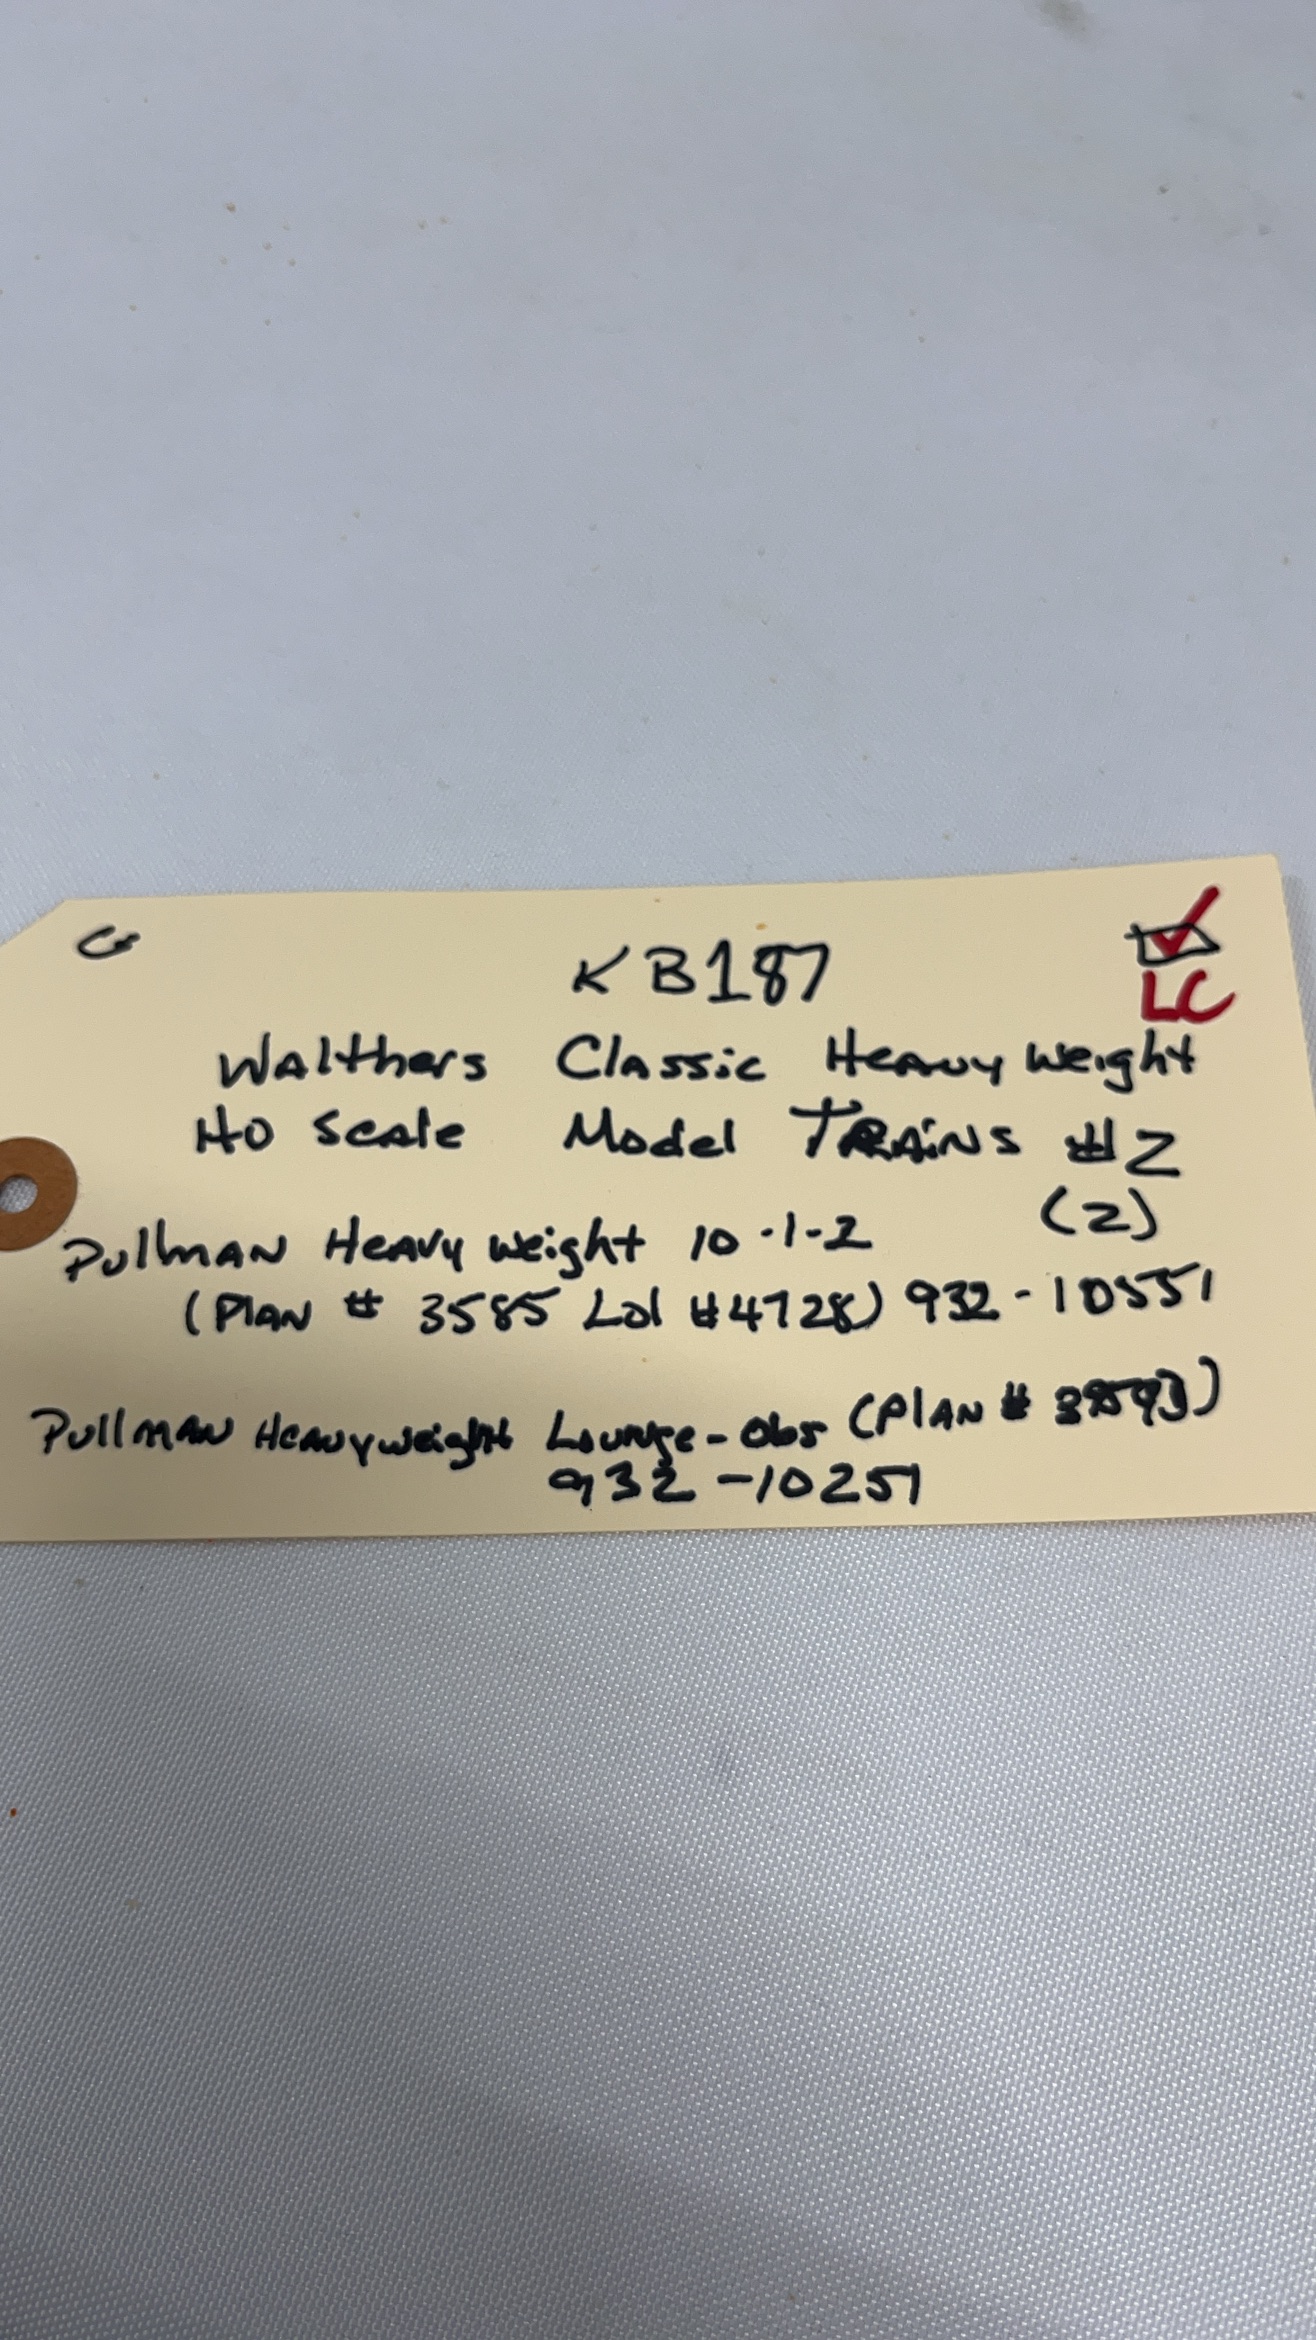 KB187
LC
Walthers Classic Heavyweight
HO Scale Model Trains #2
(2)
Pullman Heavyweight 10-1-2
(Plan # 3585 Lot #4728) 932-10551
Pullman Heavyweight Lounge-Obs (Plan #
932-10251